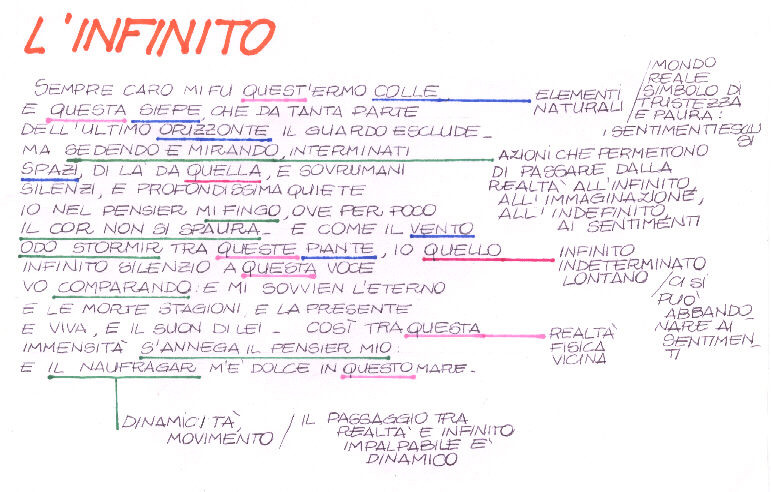 L'INFINITO
SEMPRE CARO MI FU QUEST'ERMO COLLE
E QUESTA SIEPE, CHE DA TANTA PARTE
DELL'ULTIMO ORIZZONTE IL GUARDO ESCLUDE.
MA SEDENDO E MIRANDO, INTERMINATI
SPAZI, DI LÀ DA QUELLA, E SOVRUMANI
SILENZI, E PROFONDISSIMA QUIETE
IO NEL PENSIER MI FINGO, OVE PER POCO
IL COR NON SI SPAURA. E COME IL VENTO
ODO STORMIR TRA QUESTE PIANTE, IO QUELLO
INFINITO SILENZIO A QUESTA VOCE
VO COMPARANDO: E MI SOVVIEN L'ETERNO
E LE MORTE STAGIONI, E LA PRESENTE
E VIVA, E IL SUON DI LEI. COSÌ TRA QUESTA
IMMENSITÀ S'ANNEGA IL PENSIER MIO:
E IL NAUFRAGAR M'È DOLCE IN QUESTO MARE.
ELEMENTI
NATURALI /
MONDO
REALE
SIMBOLO DI
TRISTEZZA
E PAURA:
I SENTIMENTI ESCLU
SI
AZIONI CHE PERMETTONO
DI PASSARE DALLA
REALTÀ ALL'INFINITO,
ALL'IMMAGINAZIONE,
ALL'INDEFINITO,
AI SENTIMENTI
INFINITO
INDETERMINATO
LONTANO /
CI SI
PUÒ
ABBANDO-
NARE AI
SENTIMEN-
TI
REALTÀ
FISICA
VICINA
DINAMICITÀ,
MOVIMENTO /
IL PASSAGGIO TRA
REALTÀ E INFINITO
IMPALPABILE E'
DINAMICO